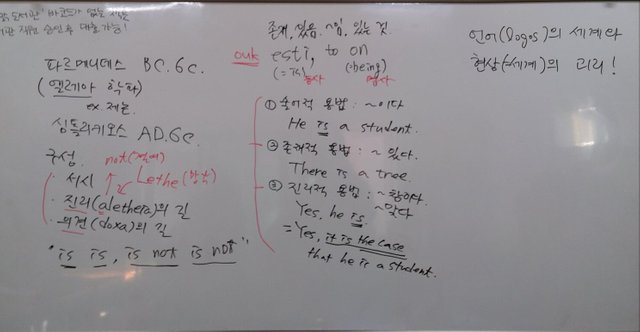 파르메니데스 BC.6C.
(엘레아 학파)
ex.제논.
심플리키오스 AD.6C.
구성. not(결여)
Lethe(망각)
· 서시
· 진리(aletheia)의 길
· 의견(doxa)의 길
"is is, is not is not"
존재, 있음. ~임, 있는 것.
ouk esti, to on
(=is) (=being)
동사 명사
① 술어적 용법 : ~이다
He is a student.
② 존재적 용법 : ~ 있다.
There is a tree.
③ 진리적 용법 : ~참이다.
~맞다
Yes, he is
= Yes, it is the case
that he is a student.
언어(logos)의 세계와
현상(=세계)의 괴리!